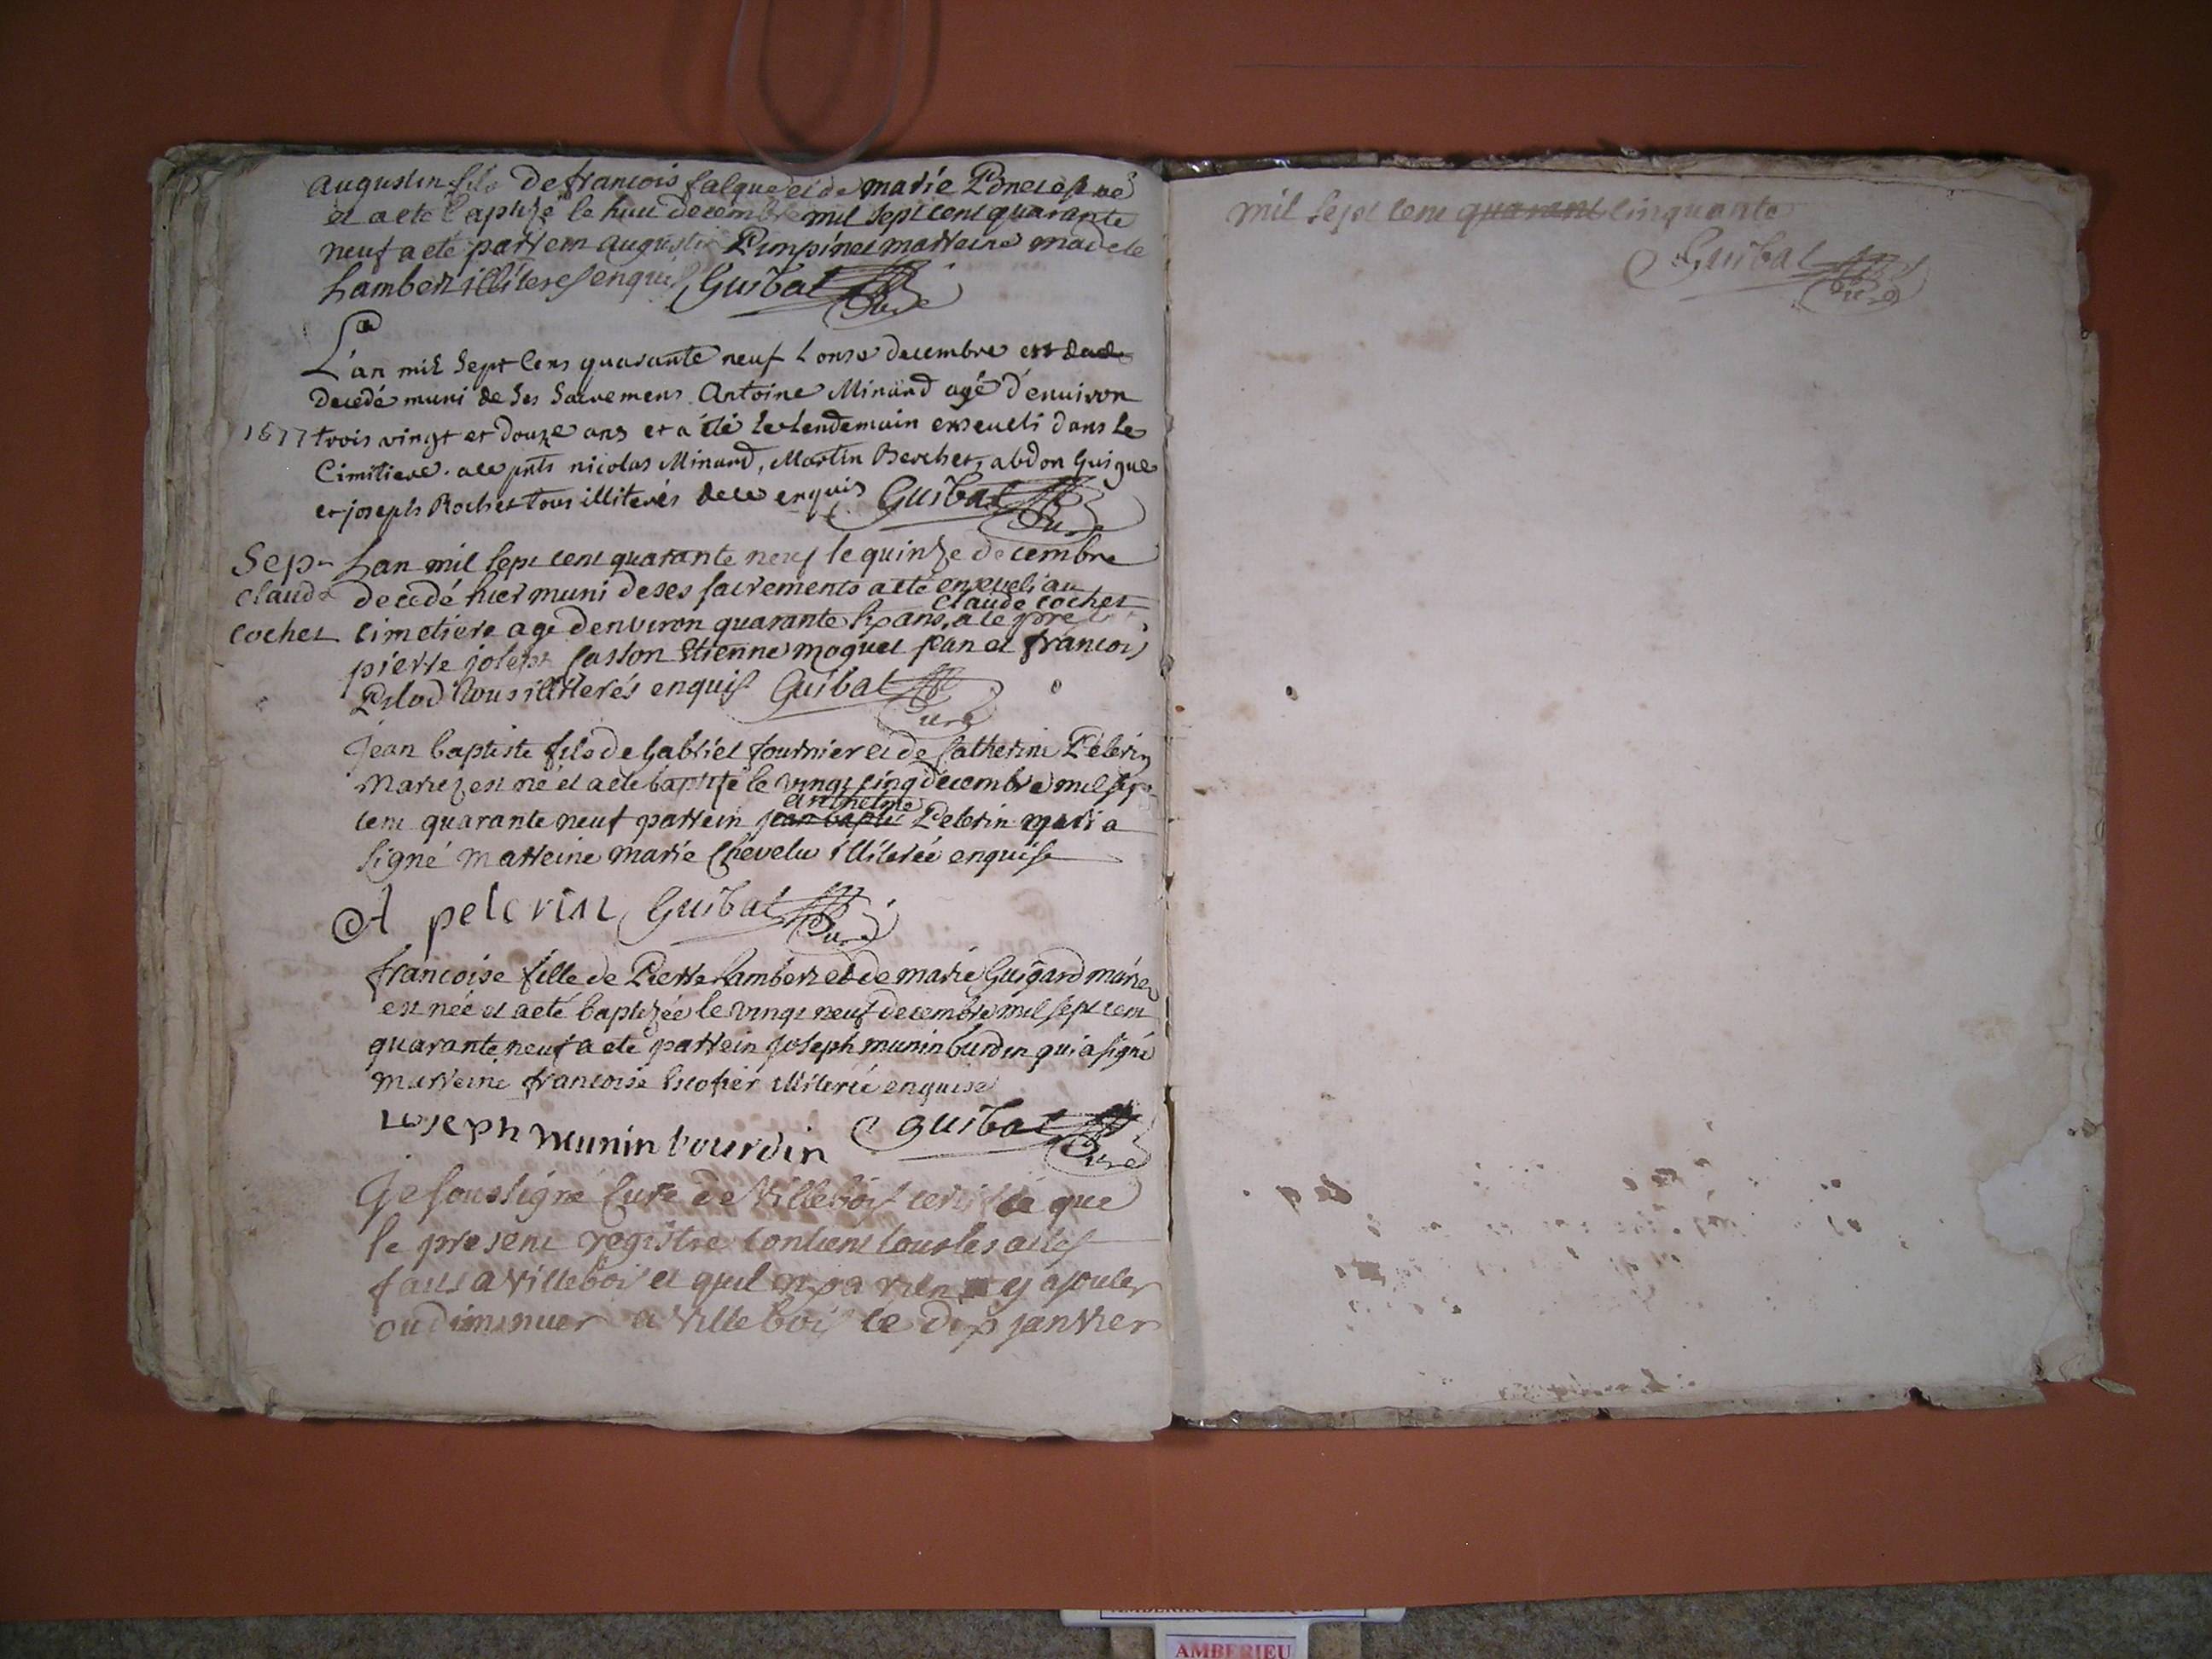 augustin fils de francois falque et de marie Poncet est né
et a ete baptizé le huit decembre mil sept cent quarante
neuf a eté parrein augustin Pinpinet marreine
Lambert illiteres enquis Guibal Curé
L'an mil Sept Cens quarante neuf L'onze decembre est
decedé muni de Ses Sacremens Antoine Minard agé d'environ
1677 trois vingt et douze ans et a été le lendemain enseueli dans le
Cimitiere. a ce pnts nicolas Minard, Martin Berchet, abdon Guigue
et joseph Rochet tous illiterés de ce enquis Guibal Curé
Sep- Lan mil sept cent quarante neuf le quinze decembre
claude decedé hier muni de ses sacrements a eté enseveli au
claude cochet
cochet cimetiere agé denviron quarante six ans, a ce
pierre joseph Casson Etienne moguet jean et francois
Pilod tous illiterés enquis Guibal Curé
Jean baptiste fils de Gabriel fournier et de Catherine Pelerin
Mariez est né et a ete baptizé le vingt cinq decembre mil sept
anthelme
cent quarante neuf parrein jean baptte Pelerin qui a
signé marreine marie Chevelu illiterée enquise
A pelerin Guibal Curé
francoise fille de Pierre Lambert et de marie Guigard mariez
est née et a eté baptizée le vingt neuf decembre mil sept cent
quarante neuf a eté parrein Joseph munin burdin qui a signé
marreine francoise Escofier illiterée enquise
Joseph munin bourdin Guibal Curé
Je soussigné Curé de Villebois certifié que
le present registre contient tous les actes
faits a Villebois et quil n'y a rien y ajouter
ou diminuer a Villebois le dix janvier
mil sept cent quarant cinquante
Guibal Curé
AMBERIEU